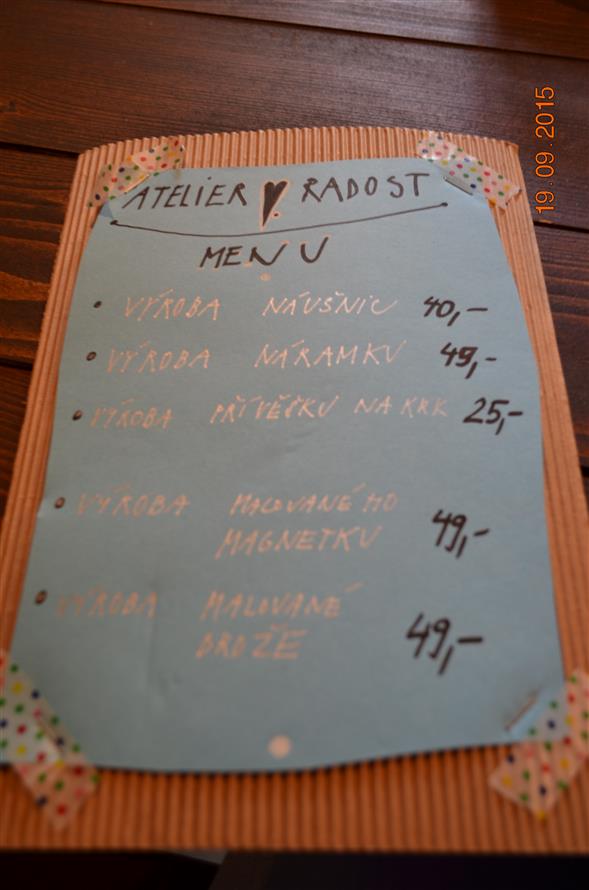 19.09.2015
ATELIER RADOST
MENU
• VÝROBA NÁUŠNIC 40,-
• VÝROBA NÁRAMKU 49,-
• VÝROBA PŘÍVĚČKU NA KRK 25,-
• VÝROBA MALOVANÉHO
MAGNETKU 49,-
• VÝROBA MALOVANÉ
BROŽE 49,-